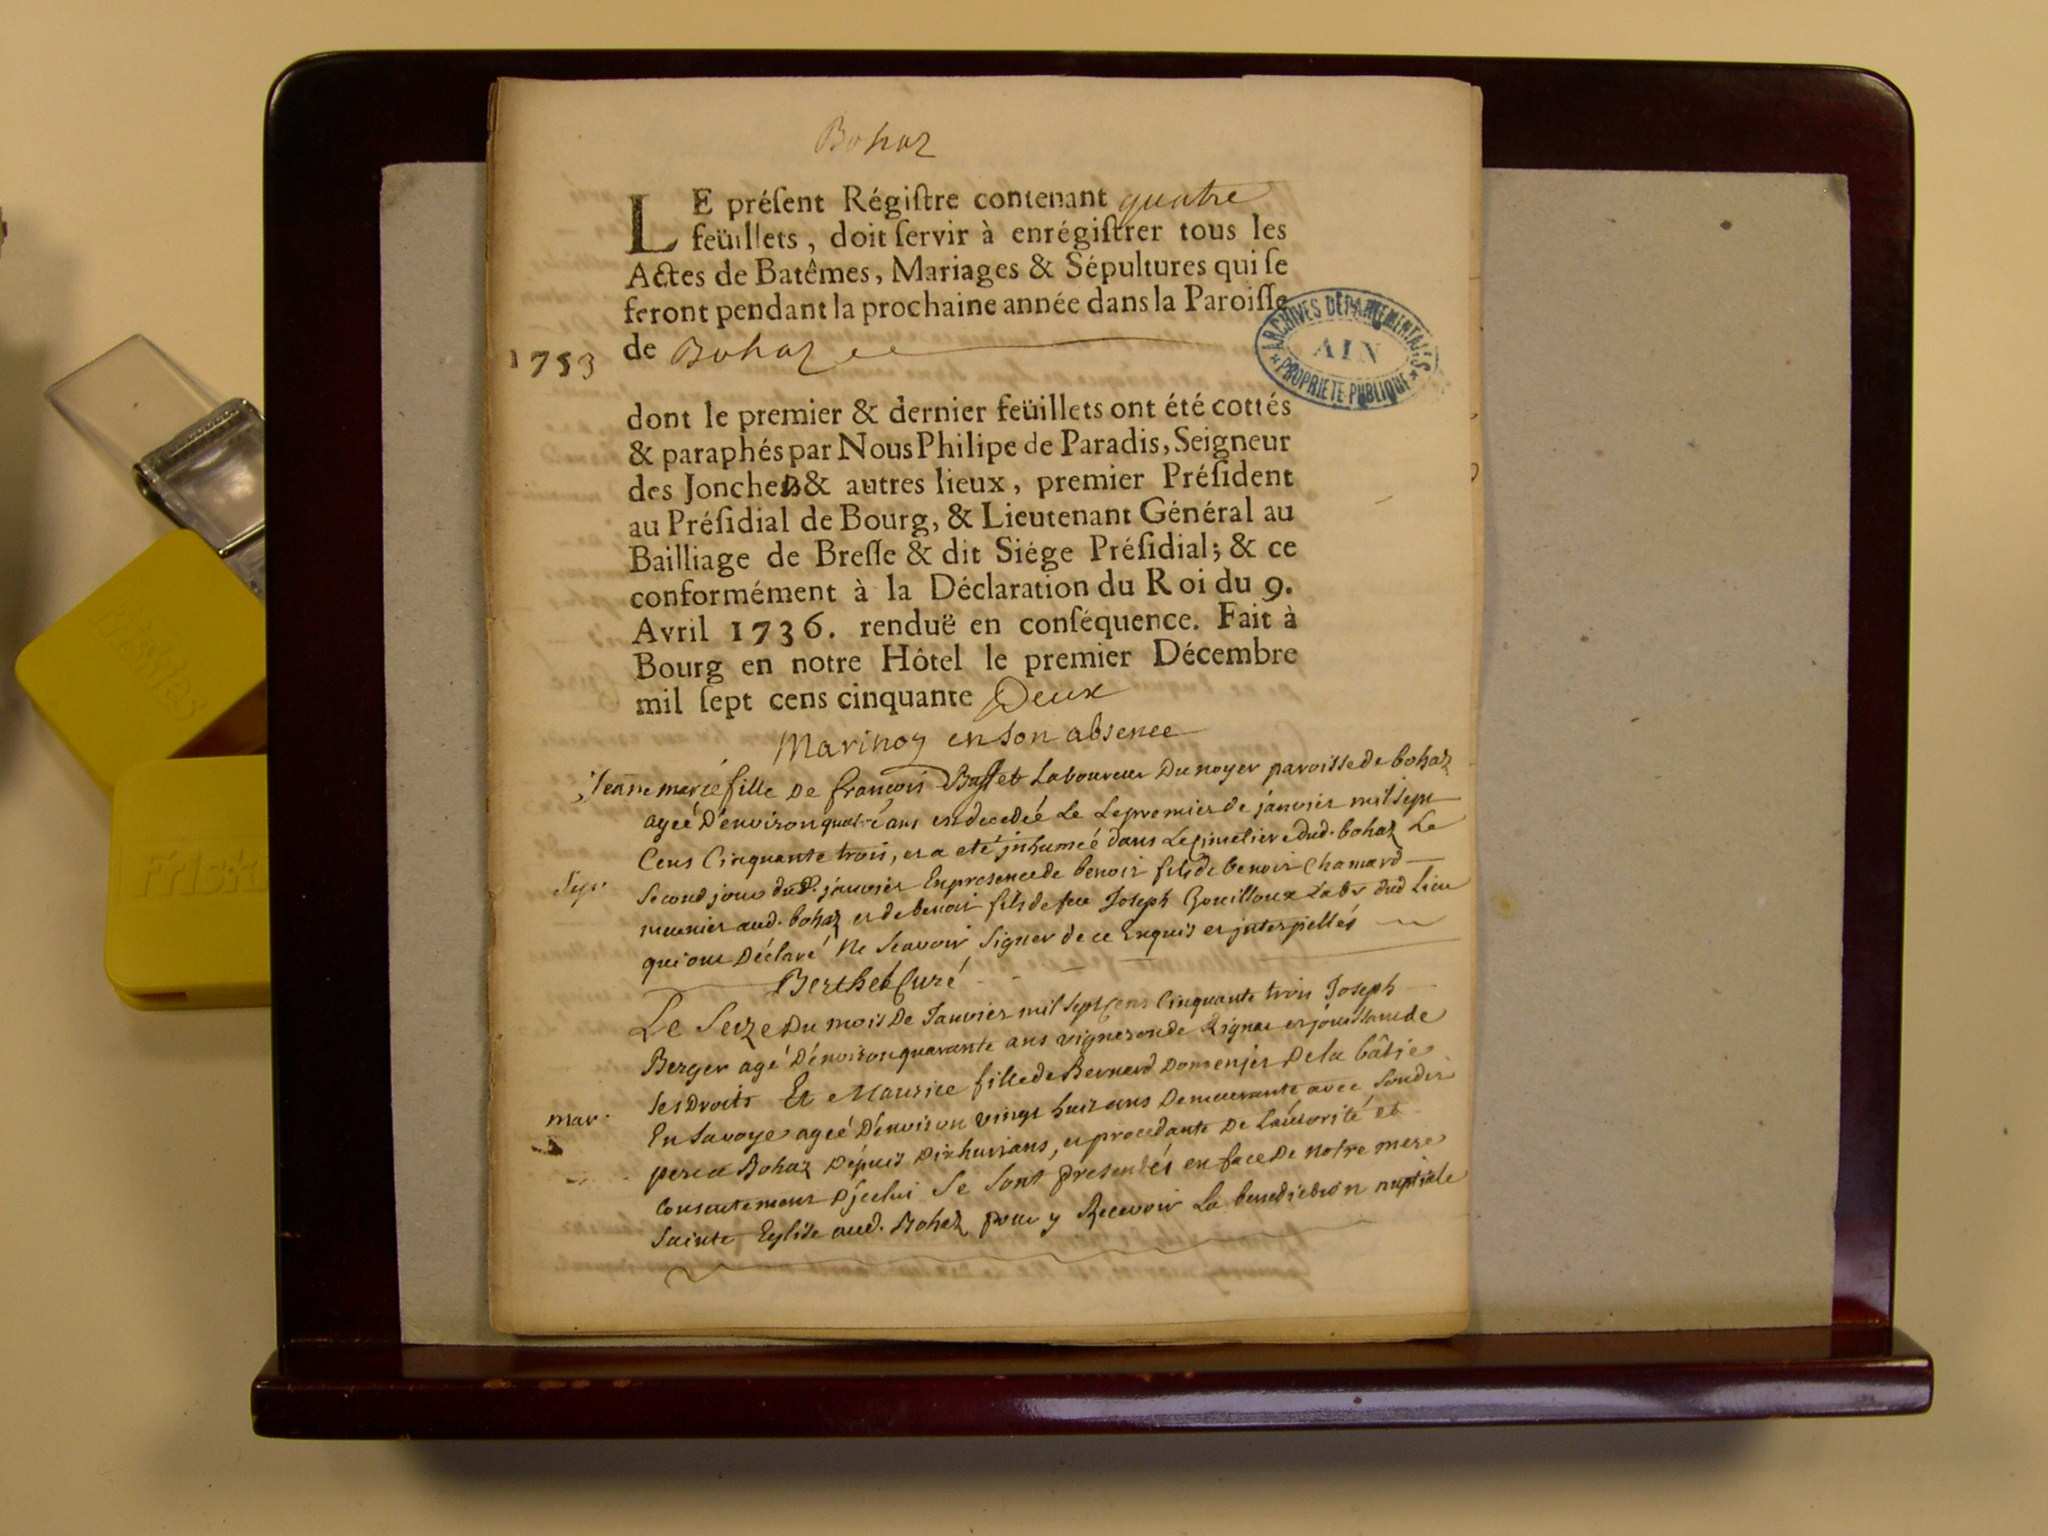 Bohaz
LE préſent Régiſtre contenant quatre
feüillets, doit ſervir à enrégiſtrer tous les
Actes de Batêmes, Mariages & Sépultures qui ſe
feront pendant la prochaine année dans la Paroiſſe
1753
de Bohaz
ARCHIVES DÉPARTEMENTALES
AIN
PROPRIÉTÉ PUBLIQUE
dont le premier & dernier feüillets ont été cottés
& paraphés par Nous Philipe de Paradis, Seigneur
des Jonche & autres lieux, premier Préſident
au Préſidial de Bourg, & Lieutenant Général au
Bailliage de Breſſe & dit Siége Préſidial; & ce
conformément à la Déclaration du Roi du 9.
Avril 1736. renduë en conſéquence. Fait à
Bourg en notre Hôtel le premier Décembre
mil ſept cens cinquante Deux
Marinoz en son absence
Jeanne marie fille De françois Buffet Laboureur Du noyer paroisse de bohaz
ageé D'environ quatre ans est decedeé Le Le premier de janvier mil sept
Cens Cinquante trois, et a eté jnhumeé dans Le cimetiere dud. bohaz Le
Sep.
Second jour dud. janvier En presence de benoit fils de benoit Chamard
meunier aud. bohaz et de benoit fils de feu Joseph Gouilloux Lab. dud Lieu
qui ont Déclaré Ne Scavoir Signer de ce Enquis et jnterpellés
Berthet Curé
Le Seize Du mois De Janvier mil Sept Cens Cinquante trois Joseph
Berger agé D'environ quarante ans vigneron de Rignat et jouissant de
ses Droits Et Maurice fille de Bernard Domenjer De la bâtie
mar.
En Savoye ageé D'environ vingt huit ans Demeurante avec Son
pere a Bohaz Dépuis Dix huit ans, et procedante De L'autorité et
Consentement D'jcelui Se Sont présentés en face De notre mere
Sainte Eglise aud. Bohaz pour y Recevoir La benediction nuptiale
Frisk